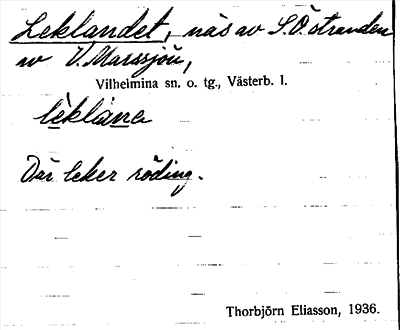 Leklandet, näs av S.Östranden
av V. Marssjön,
Vilhelmina sn. o. tg., Västerb. l.
lèklâna
Där leker röding.
Thorbjörn Eliasson, 1936.